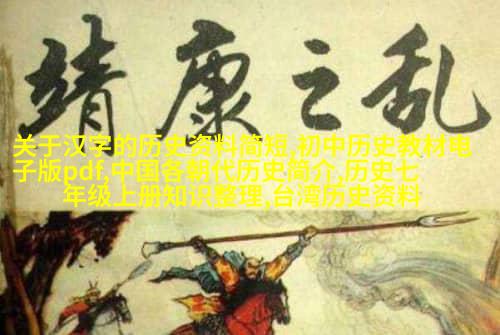 靖康之乱
关于汉字的历史资料简短,初中历史教材电
子版pdf,中国各朝代历史简介,历史七
年级上册知识整理,台湾历史资料